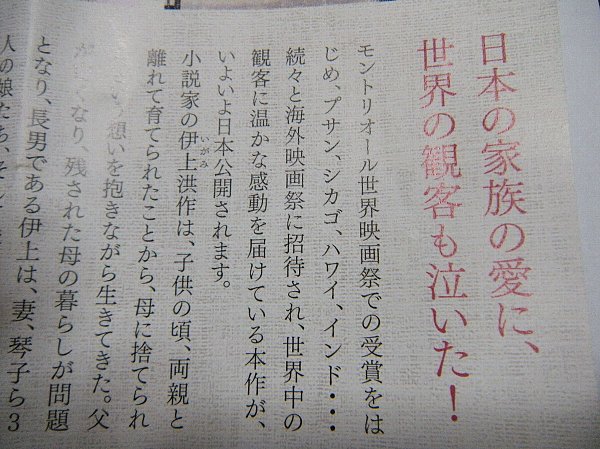 日本の家族の愛に、
世界の観客も泣いた！
モントリオール世界映画祭での受賞をは
じめ、プサン、シカゴ、ハワイ、インド・・・
続々と海外映画祭に招待され、世界中の
観客に温かな感動を届けている本作が、
いよいよ日本公開されます。
小説家の伊上洪作は、子供の頃、両親と
いがみ
離れて育てられたことから、母に捨てられ
想いを抱きながら生きてきた。父
なり、残された母の暮らしが問題
となり、長男である伊上は、妻、琴子ら3
人の娘たち、